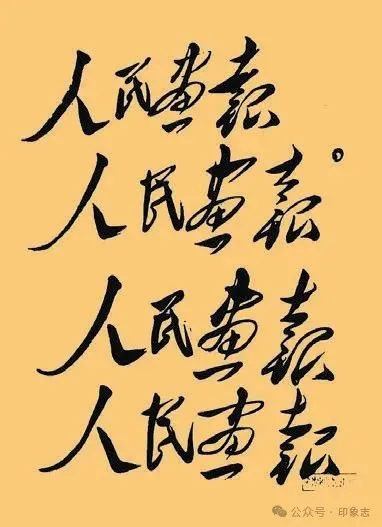 人民画报
人民画报
人民画报
人民画报
公众号·印象志